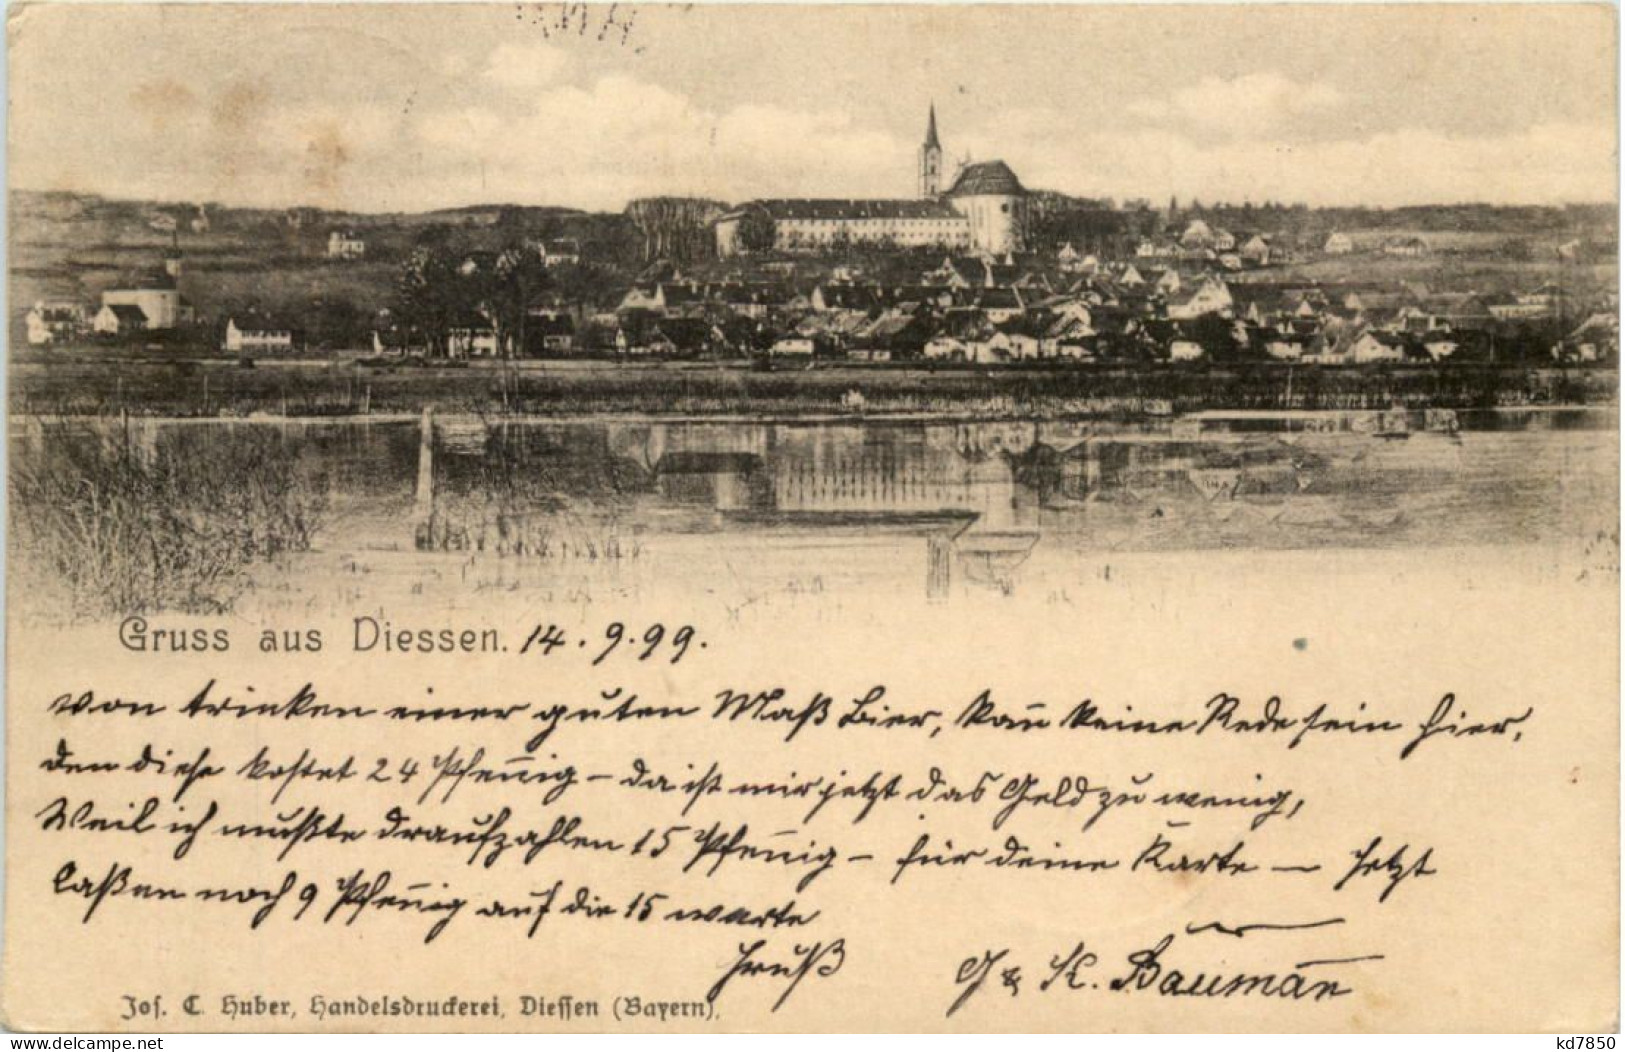 Gruss aus Diessen. 14. 9. 99.
von trinken einer guten Maß Bier, kañ keine Rede sein hier,
den diese kostet 24 Pfeñig – da ist mir jetzt das Geld zu wenig,
Weil ich mußte draufzahlen 15 Pfeñig – für deine Karte – Jetzt
laßen noch 9 Pfeñig auf die 15 warte
Gruß G & K. Baumañ
Jos. C. Huber, Handelsdruckerei, Diessen (Bayern).
delcampe.net
kd7850